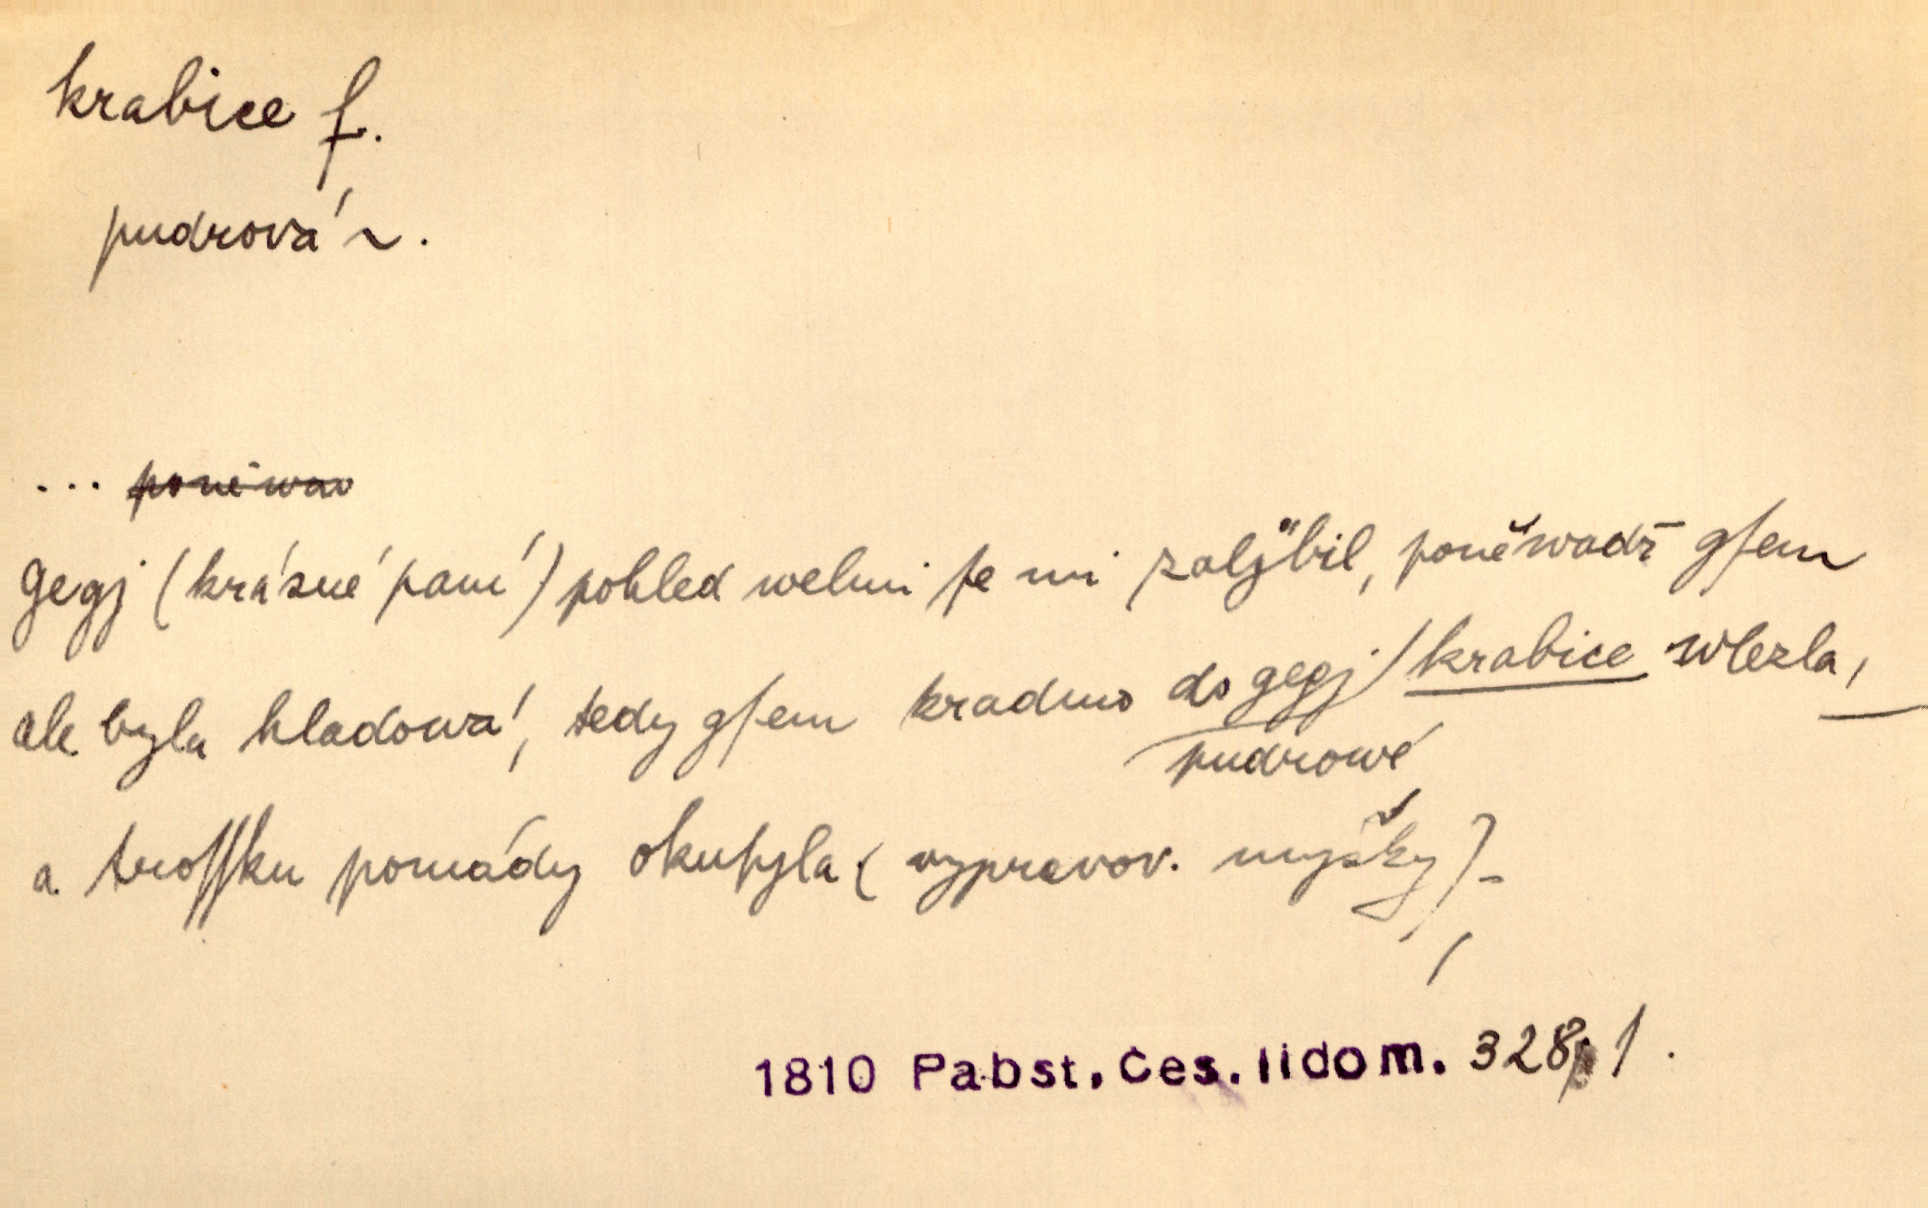 krabice f.
pudrová ~.
... poněwaď
Gegj (krásné paní) pohled welmi ſe mi zaljbil, poněwadž gſem
ale byla hladowá, tedy gſem kradmo do gegj krabice wlezla,
pudrowé
a troſſku pomády okuſyla (vypravov. myšky)-
1810 Pabst. Čes. lidom. 328, 1.